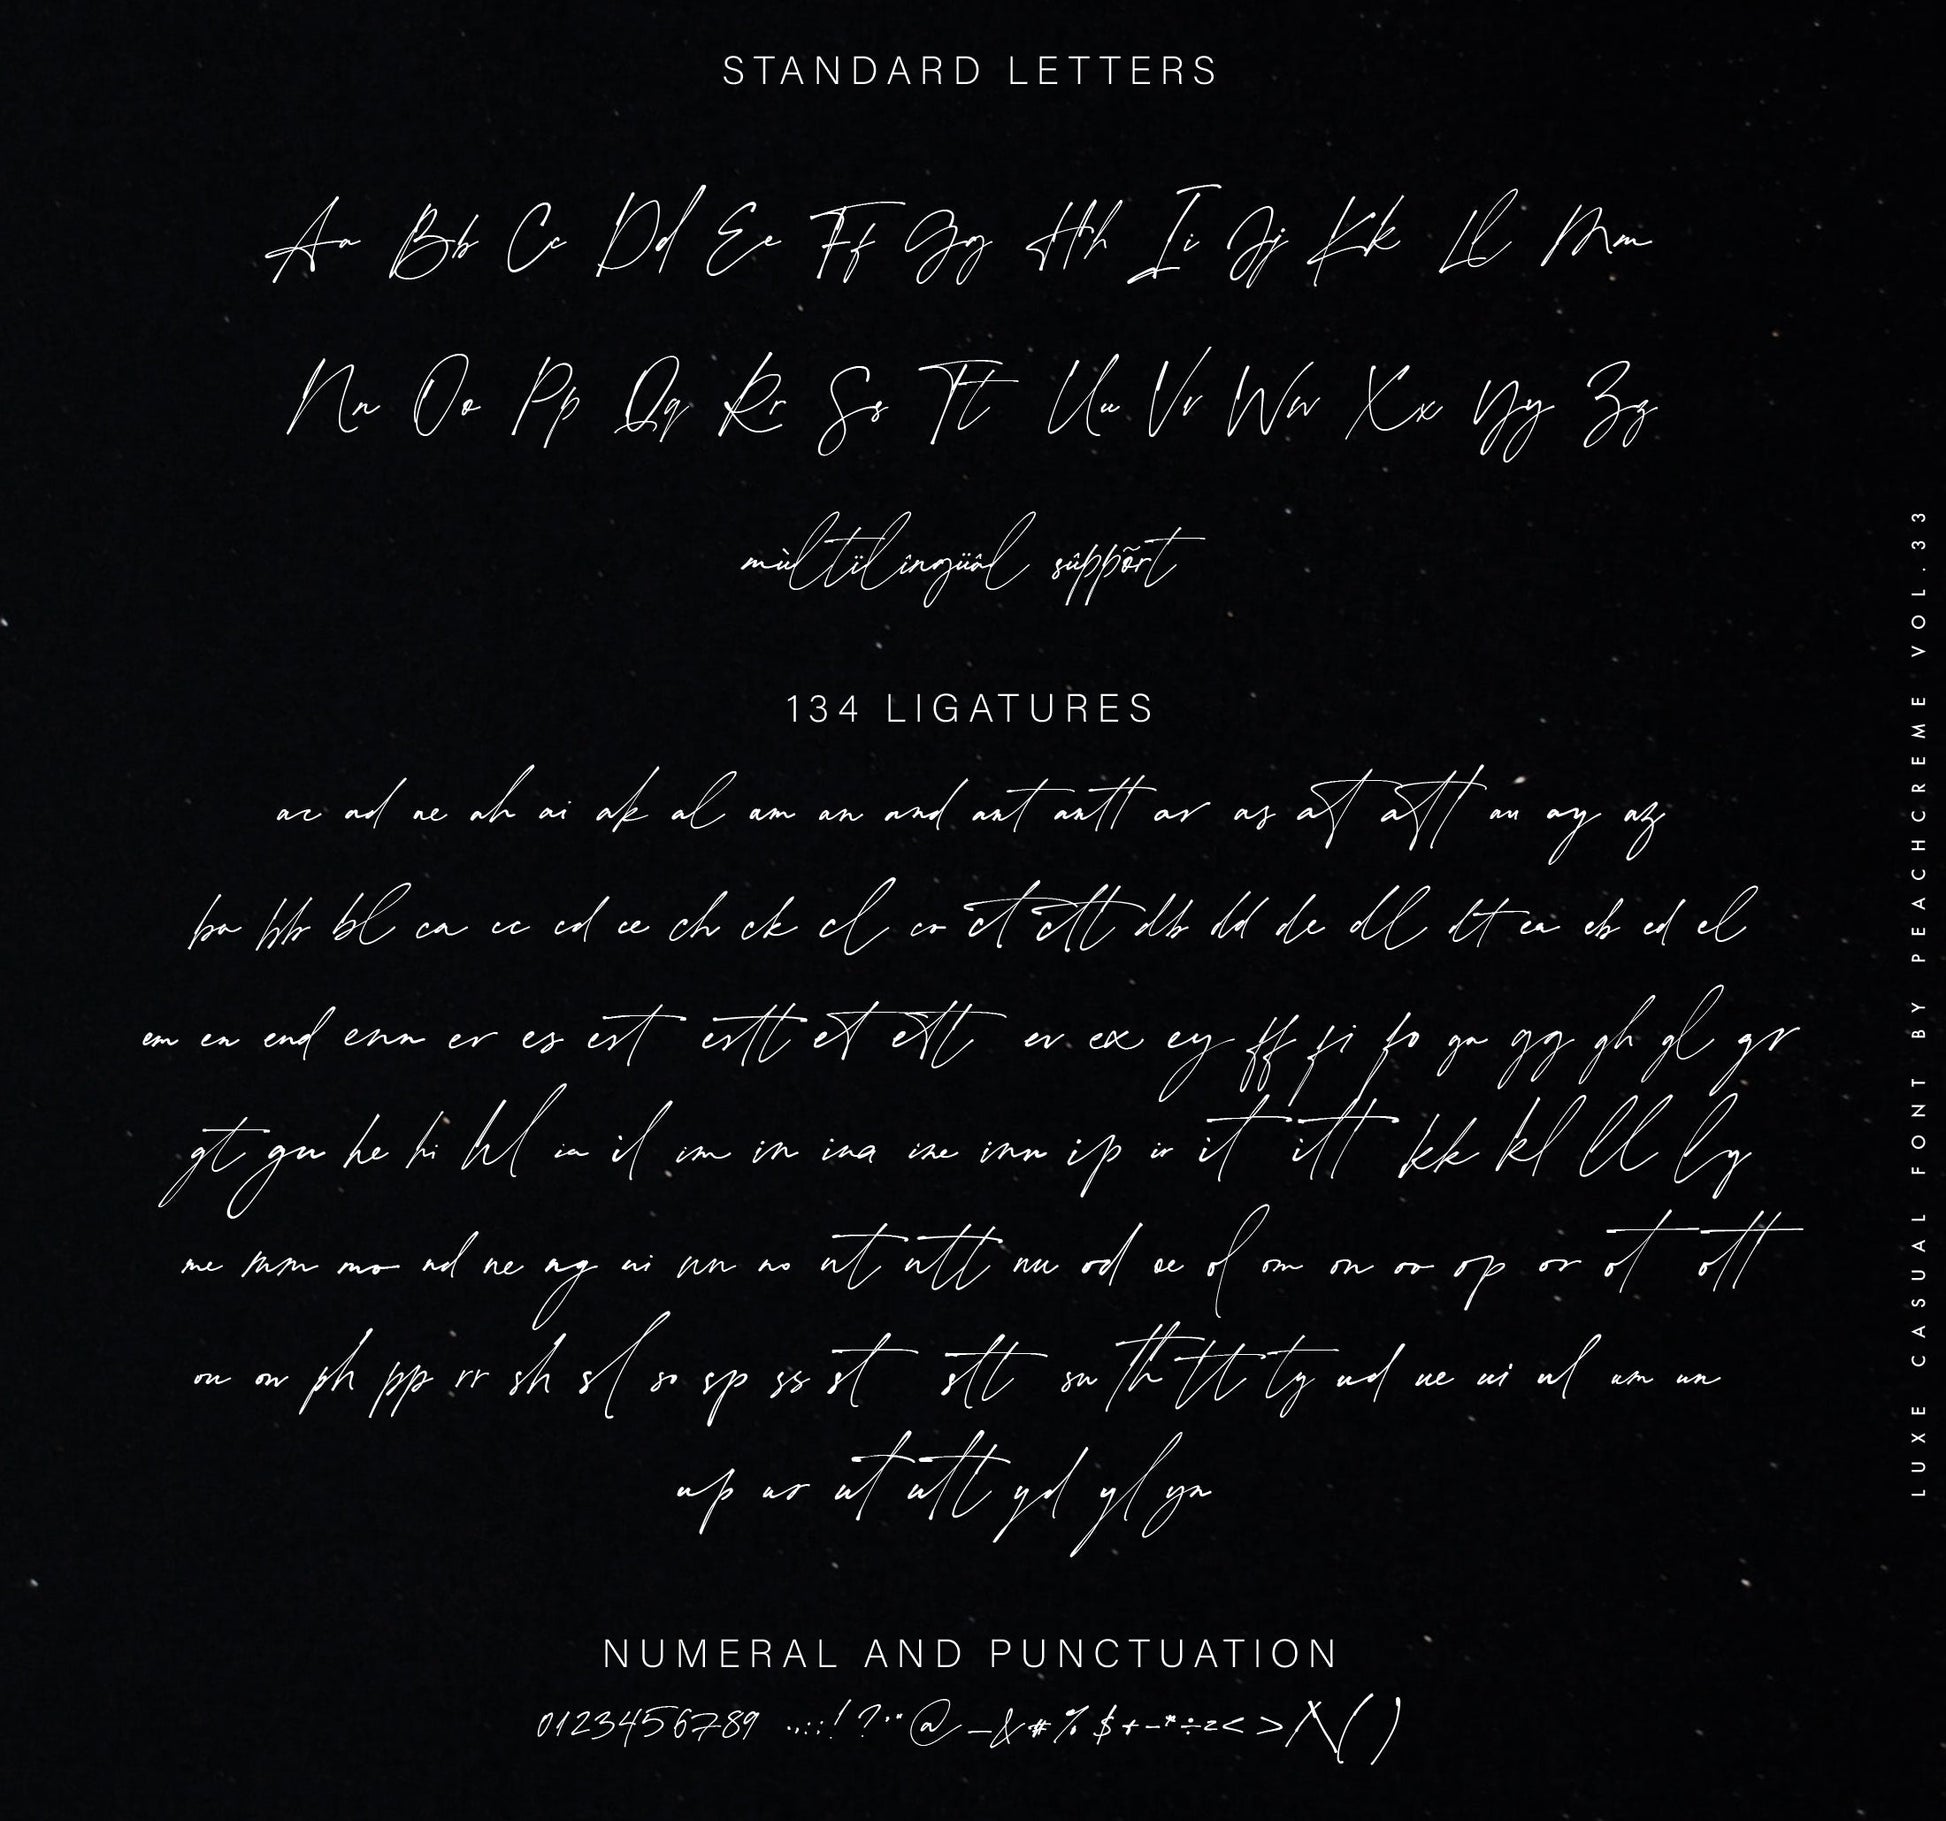 STANDARD LETTERS
Aa Bb Cc Dd Ee Ff Gg Hh Ii Jj Kk Ll Mm
Nn Oo Pp Qq Rr Ss Tt Uu Vv Ww Xx Yy Zz
mùltïlîngüâl sûppõrt
134 LIGATURES
ac ad ae ah ai ak al am an and ant antt ar as at att au ay az
ba bb bl ca cc cd ce ch ck cl co ct ctt db dd de dl dt ea eb ed el
em en end enn er es est estt et ett ev ex ey ff fi fo ga gg gh gl gr
gt gu he hi hl ia il im in ina ine inn ip ir it itt kk kl ll ly
me mm mo nd ne ng ni nn no nt ntt nu od oe of om on oo op or ot ott
ou ow ph pp rr sh sl so sp ss st stt su th tt ty ud ue ui ul um un
up ur ut utt yd yl yn
NUMERAL AND PUNCTUATION
0123456789 .,:;!?'"@_&#%$+-*÷=<>/\()
LUXE CASUAL FONT BY PEACHCREME VOL.33